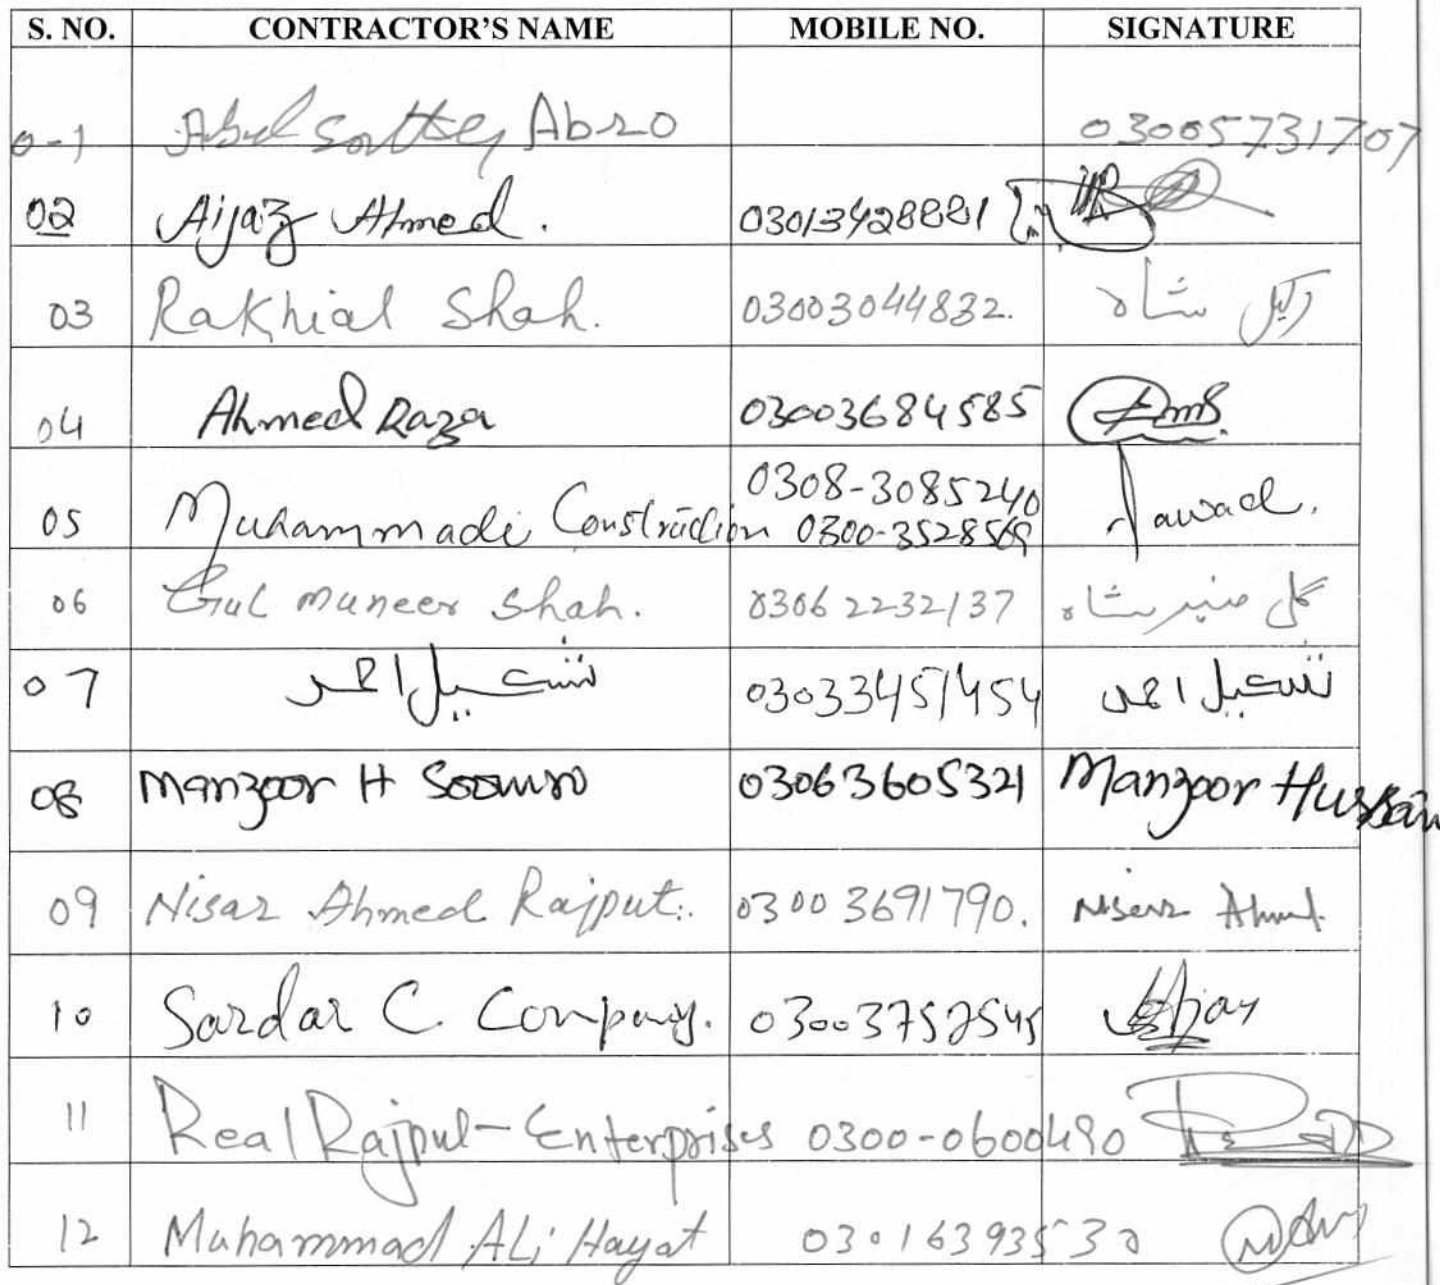 S. NO. CONTRACTOR'S NAME MOBILE NO. SIGNATURE
0-1 Abro 03005731707
02 Aijaz Ahmed. 03013428881
03 Rakhial Shah. 03003044832. شاہ
04 Ahmed Raza 03003684585
0308-3085240
05 Muhammadi Construction 0300-3528569 Jawad.
06 Gul muneer Shah. 03062232137 گل منیر شاہ
07 احمد 03033451454 احمد
08 Manzoor H Soomro 03063605321 Manzoor Hussain
09 Nisar Ahmed Rajput. 03003691790. Nisar Ahmed
10 Sardar C. Company. 03003757545
11 Real Rajput-Enterprises 0300-0600490
12 Muhammad ALi Hayat 03016393530